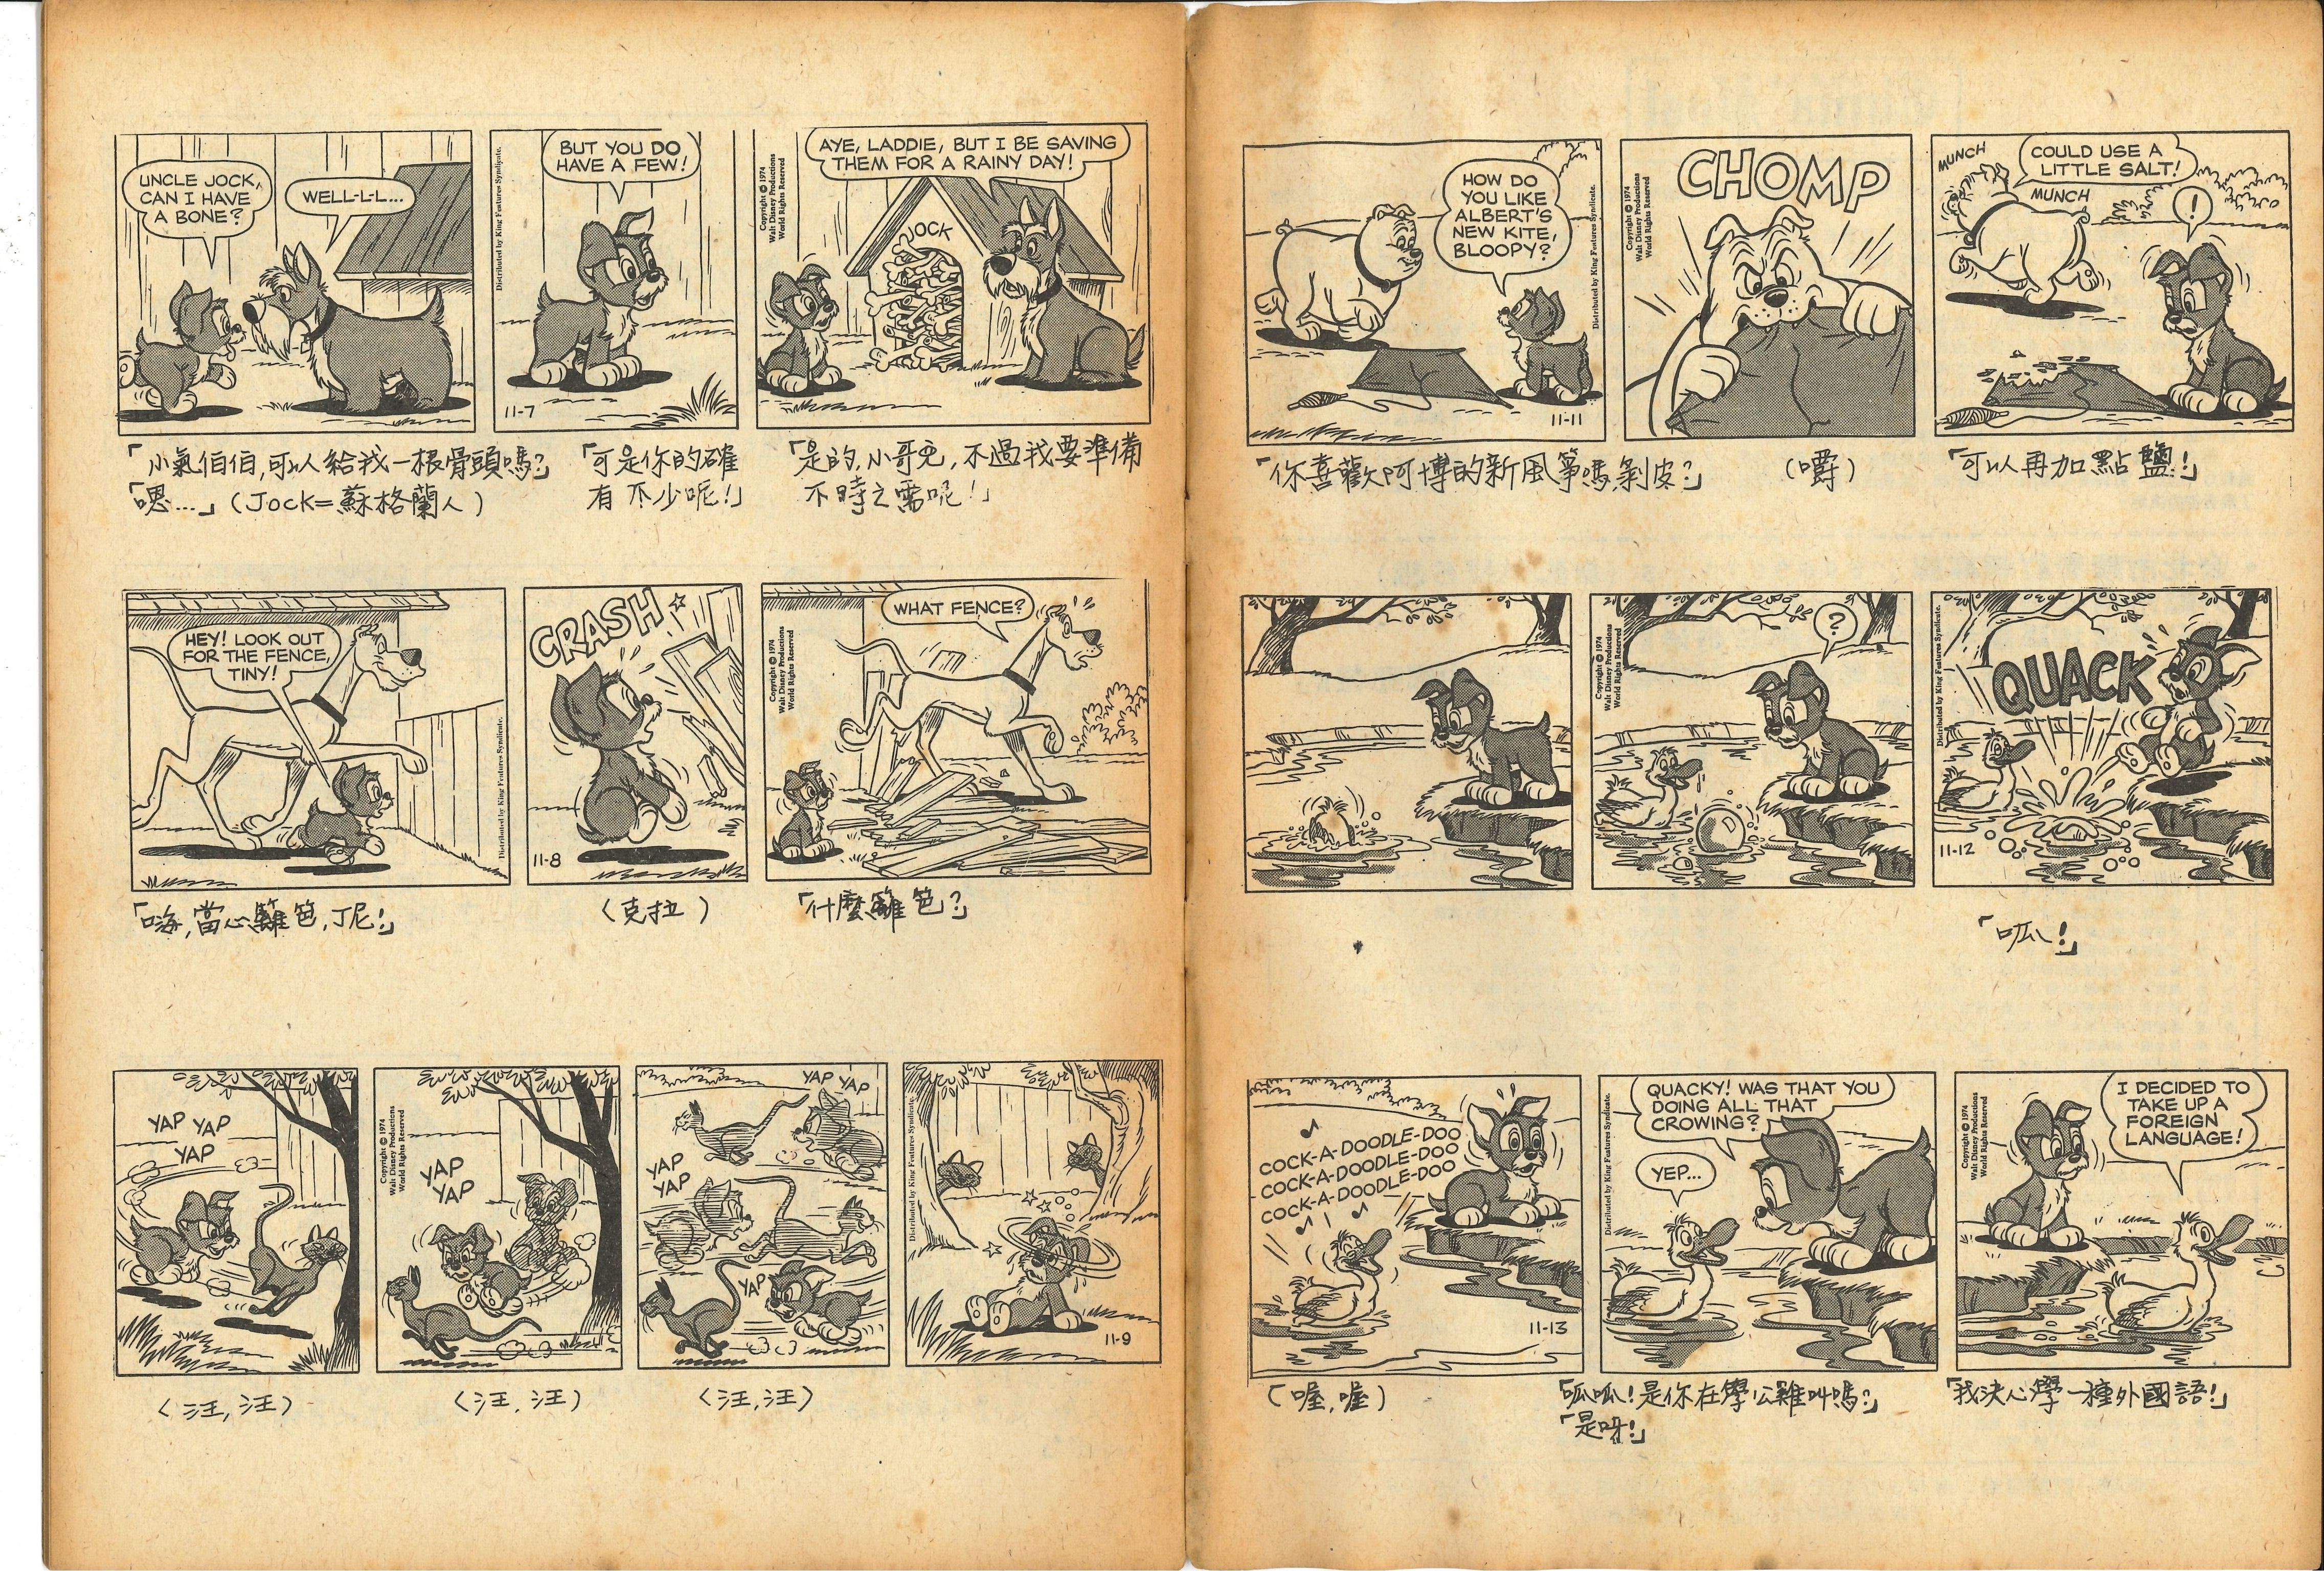 UNCLE JOCK,
CAN I HAVE
A BONE?
WELL-L-L...
BUT YOU DO
HAVE A FEW!
Distributed by King Features Syndicate.
11-7
Copyright © 1974
Walt Disney Productions
World Rights Reserved
AYE, LADDIE, BUT I BE SAVING
THEM FOR A RAINY DAY!
JOCK
「小氣伯伯,可以給我一根骨頭嗎?」
「嗯…」(Jock=蘇格蘭人)
「可是你的確
有不少呢!」
「是的,小哥兒,不過我要準備
不時之需呢!」
HEY! LOOK OUT
FOR THE FENCE,
TINY!
Distributed by King Features Syndicate.
CRASH
11-8
Copyright © 1974
Walt Disney Productions
World Rights Reserved
WHAT FENCE?
「嗨,當心籬笆,丁尼!」
(克拉)
「什麼籬笆?」
YAP YAP
YAP
Copyright © 1974
Walt Disney Productions
World Rights Reserved
YAP
YAP
YAP YAP
YAP
YAP
YAP
Distributed by King Features Syndicate.
11-9
(汪,汪)
(汪,汪)
(汪,汪)
HOW DO
YOU LIKE
ALBERT'S
NEW KITE,
BLOOPY?
Distributed by King Features Syndicate.
11-11
Copyright © 1974
Walt Disney Productions
World Rights Reserved
CHOMP
MUNCH
COULD USE A
LITTLE SALT!
MUNCH
!
「你喜歡阿博的新風箏嗎,剝皮?」
(嚼)
「可以再加點鹽!」
Copyright © 1974
Walt Disney Productions
World Rights Reserved
?
Distributed by King Features Syndicate.
QUACK
11-12
「呱!」
COCK-A-DOODLE-DOO
COCK-A-DOODLE-DOO
COCK-A-DOODLE-DOO
11-13
Distributed by King Features Syndicate.
QUACKY! WAS THAT YOU
DOING ALL THAT
CROWING?
YEP...
Copyright © 1974
Walt Disney Productions
World Rights Reserved
I DECIDED TO
TAKE UP A
FOREIGN
LANGUAGE!
(喔,喔)
「呱呱!是你在學公雞叫嗎?」
「是呀!」
「我決心學一種外國語!」